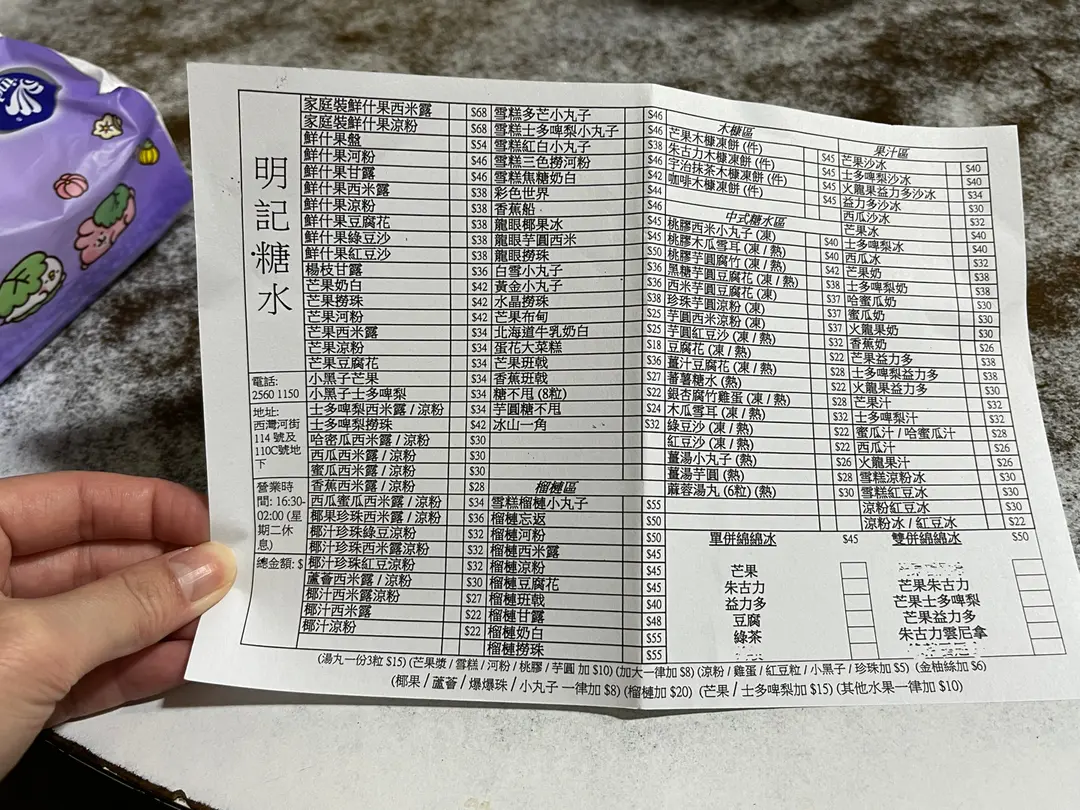 明記糖水
電話:
2560 1150
地址:
西灣河街
114 號及
110C號地
下
營業時
間: 16:30-
02:00 (星
期二休
息)
總金額: $
家庭裝鮮什果西米露 $68
家庭裝鮮什果涼粉 $68
鮮什果盤 $54
鮮什果河粉 $46
鮮什果甘露 $46
鮮什果西米露 $38
鮮什果涼粉 $38
鮮什果豆腐花 $38
鮮什果綠豆沙 $38
鮮什果紅豆沙 $38
楊枝甘露 $36
芒果奶白 $42
芒果撈珠 $42
芒果河粉 $42
芒果西米露 $34
芒果涼粉 $34
芒果豆腐花 $34
小黑子芒果 $34
小黑子士多啤梨 $34
士多啤梨西米露 / 涼粉 $34
士多啤梨撈珠 $42
哈密瓜西米露 / 涼粉 $30
西瓜西米露 / 涼粉 $30
蜜瓜西米露 / 涼粉 $30
香蕉西米露 / 涼粉 $28
西瓜蜜瓜西米露 / 涼粉 $34
椰果珍珠西米露 / 涼粉 $36
椰汁珍珠綠豆涼粉 $32
椰汁珍珠西米露涼粉 $32
椰汁珍珠紅豆涼粉 $32
蘆薈西米露 / 涼粉 $30
椰汁西米露涼粉 $27
椰汁西米露 $22
椰汁涼粉 $22
雪糕多芒小丸子 $46
雪糕士多啤梨小丸子 $46
雪糕紅白小丸子 $38
雪糕三色撈河粉 $46
雪糕焦糖奶白 $42
彩色世界 $44
香蕉船 $46
龍眼椰果冰 $45
龍眼芋圓西米 $45
龍眼撈珠 $50
白雪小丸子 $36
黃金小丸子 $36
水晶撈珠 $38
芒果布甸 $25
北海道牛乳奶白 $25
蛋花大菜糕 $18
芒果班戟 $36
香蕉班戟 $27
糖不甩 (8粒) $22
芋圓糖不甩 $24
冰山一角 $32
榴槤區
雪糕榴槤小丸子 $55
榴槤忘返 $50
榴槤河粉 $50
榴槤西米露 $45
榴槤涼粉 $45
榴槤豆腐花 $45
榴槤班戟 $40
榴槤甘露 $48
榴槤奶白 $55
榴槤撈珠 $55
木糠區
芒果木糠凍餅 (件) $45
朱古力木糠凍餅 (件) $45
宇治抹茶木糠凍餅 (件) $45
咖啡木糠凍餅 (件) $45
中式糖水區
桃膠西米小丸子 (凍)
桃膠木瓜雪耳 (凍 / 熱)
桃膠芋圓腐竹 (凍 / 熱)
黑糖芋圓豆腐花 (凍 / 熱)
西米芋圓豆腐花 (凍)
珍珠芋圓涼粉 (凍)
芋圓西米涼粉 (凍)
芋圓紅豆沙 (凍 / 熱)
豆腐花 (凍 / 熱)
薑汁豆腐花 (凍 / 熱)
蕃薯糖水 (熱)
銀杏腐竹雞蛋 (凍 / 熱)
木瓜雪耳 (凍 / 熱)
綠豆沙 (凍 / 熱)
紅豆沙 (凍 / 熱)
薑湯小丸子 (熱)
薑湯芋圓 (熱)
蔴蓉湯丸 (6粒) (熱)
$40
$40
$42
$38
$37
$37
$32
$22
$28
$22
$28
$32
$22
$22
$26
$28
$30
果汁區
芒果沙冰
士多啤梨沙冰
火龍果益力多沙冰
益力多沙冰
西瓜沙冰
芒果冰
士多啤梨冰
西瓜冰
芒果奶
士多啤梨奶
哈蜜瓜奶
蜜瓜奶
火龍果奶
香蕉奶
芒果益力多
士多啤梨益力多
火龍果益力多
芒果汁
士多啤梨汁
蜜瓜汁 / 哈蜜瓜汁
西瓜汁
火龍果汁
雪糕涼粉冰
雪糕紅豆冰
涼粉紅豆冰
涼粉冰 / 紅豆冰
$40
$40
$34
$30
$32
$40
$40
$32
$38
$38
$30
$30
$30
$26
$38
$38
$30
$32
$32
$28
$26
$26
$30
$30
$22
單併綿綿冰 $45
芒果
朱古力
益力多
豆腐
綠茶
雙併綿綿冰 $50
芒果朱古力
芒果士多啤梨
芒果益力多
朱古力雲尼拿
(湯丸一份3粒 $15) (芒果漿 / 雪糕 / 河粉 / 桃膠 / 芋圓 加 $10) (加大一律加 $8) (涼粉 / 雞蛋 / 紅豆粒 / 小黑子 / 珍珠加 $5) (金柚絲加 $6)
(椰果 / 蘆薈 / 爆爆珠 / 小丸子 一律加 $8) (榴槤加 $20) (芒果 / 士多啤梨加 $15) (其他水果一律加 $10)